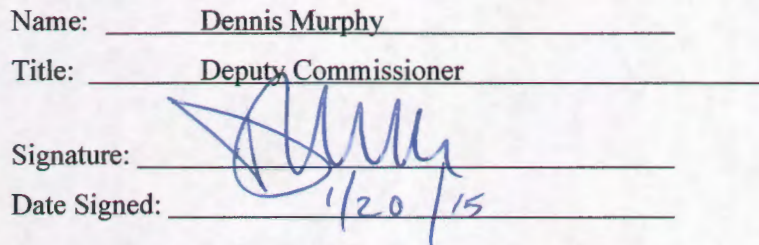 Name: Dennis Murphy
Title: Deputy Commissioner
Signature:
Date Signed: 1/20/15